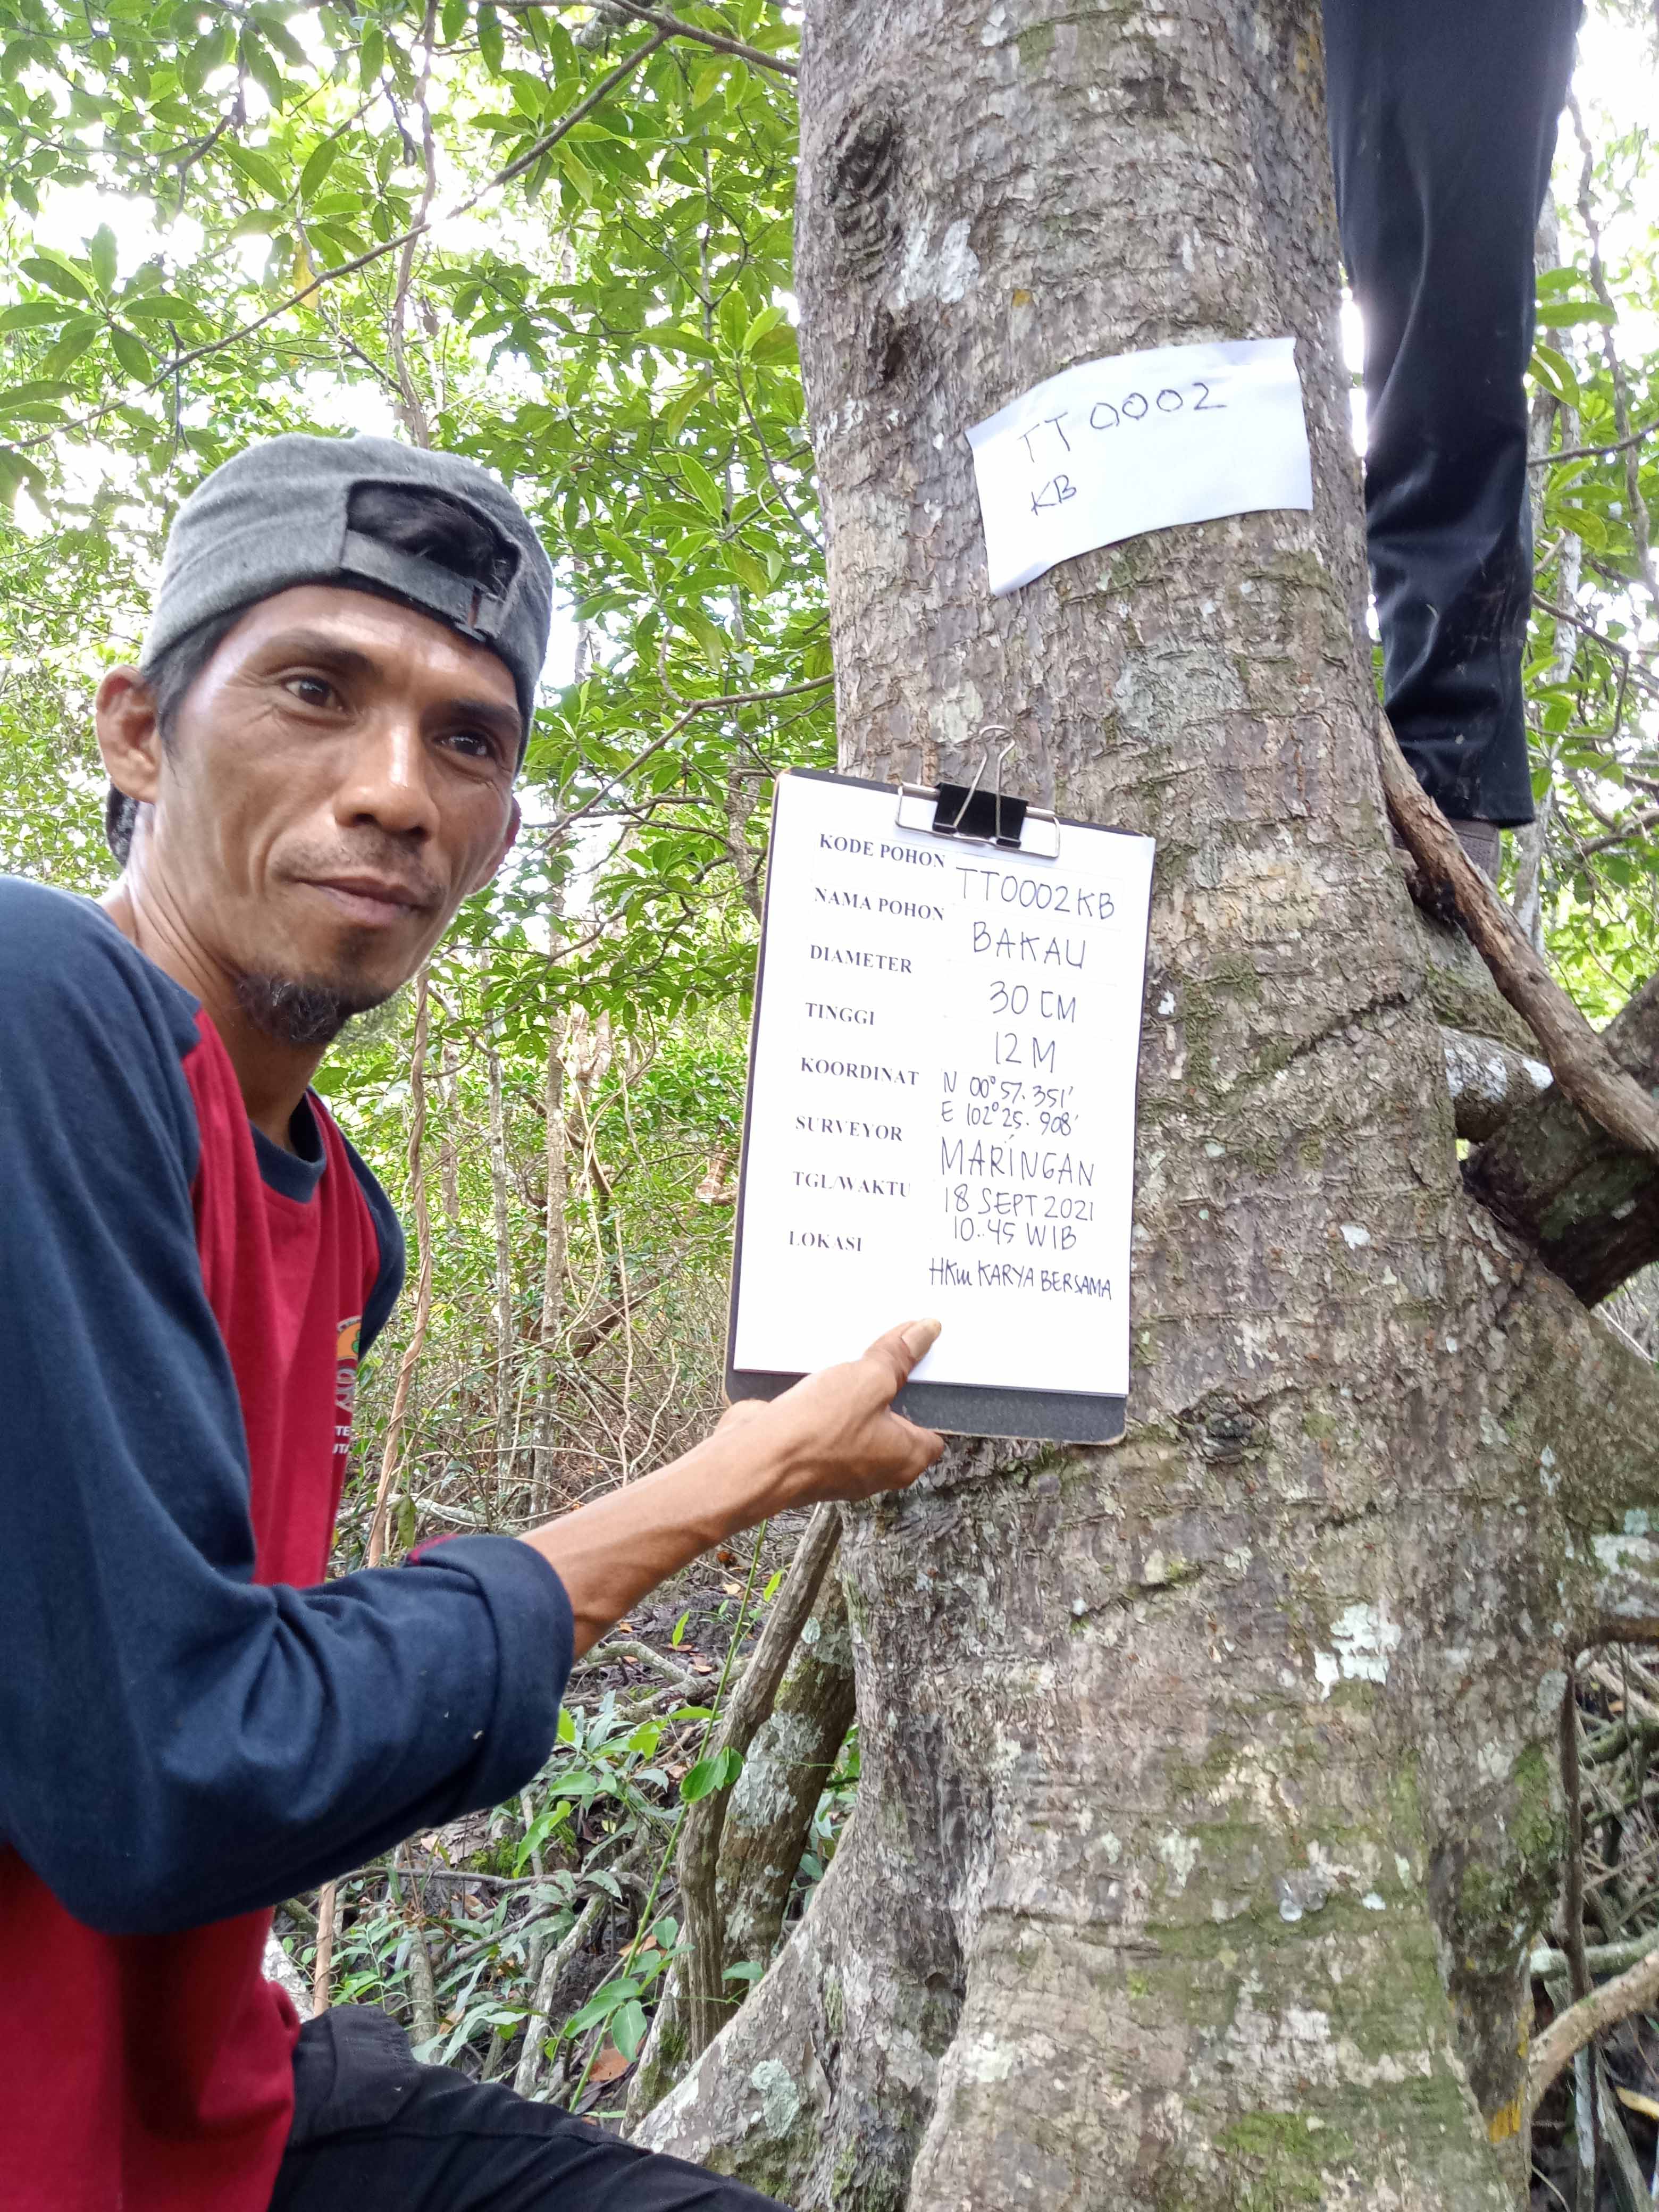 TT 0002
KB
KODE POHON TT0002KB
NAMA POHON BAKAU
DIAMETER 30 CM
TINGGI 12 M
KOORDINAT N 00° 57. 351'
E 102° 25. 908'
SURVEYOR MARINGAN
TGL/WAKTU 18 SEPT 2021
10..45 WIB
LOKASI HKm KARYA BERSAMA